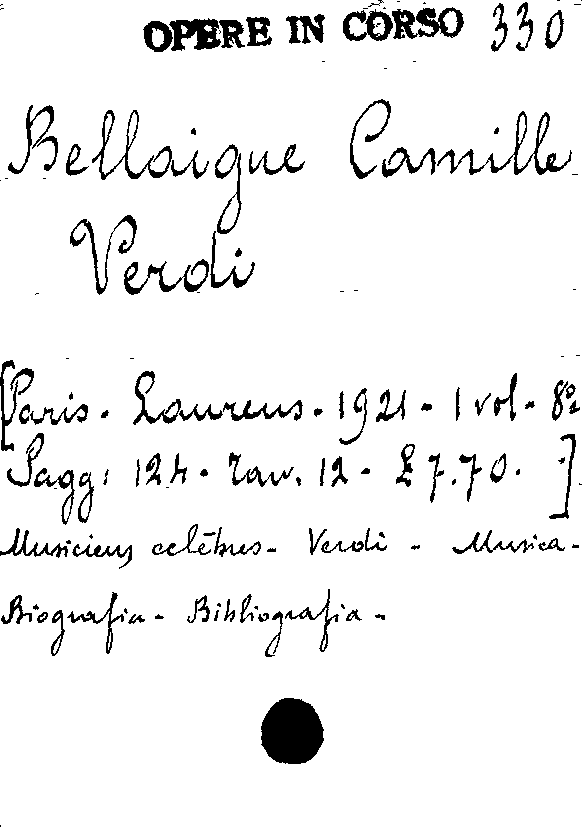 OPERE IN CORSO 330
Bellaigue Camille
Verdi
[Paris - Laurens - 1921 - 1 vol - 8º
Pagg. 124 - Tav. 12 - £ 7.70. ]
Musiciens celèbres - Verdi - Musica -
Biografia - Bibliografia -